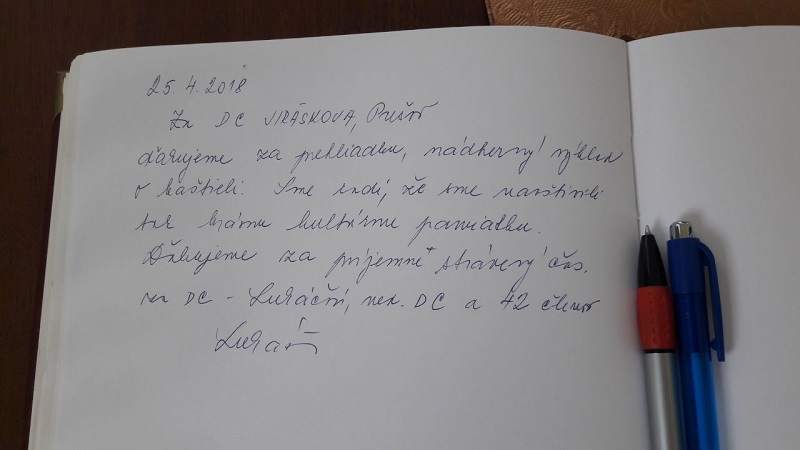 25.4.2018
Za DC JIRÁSKOVA, Prešov
ďakujeme za prehliadku, nádherný výklad
o kaštieli. Sme radi, že sme navštívili
tak krásnu kultúrnu pamiatku.
Ďakujeme za príjemne strávený čas.
za DC - Lukáčová, ved. DC a 42 členov